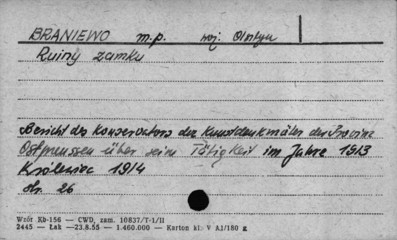 BRANIEWO m.p. woj. Olsztyn
Ruiny zamku
Bericht des Konservators der Kunstdenkmäler der Provinz
Ostpreussen über seine Tätigkeit im Jahre 1913
Królewiec 1914
str. 26
Wzór Kb-156 — CWD, zam. 10837/T-1/II
2445 — Łask —23.8.55 — 1.460.000 — Karton kl. V A1/180 g